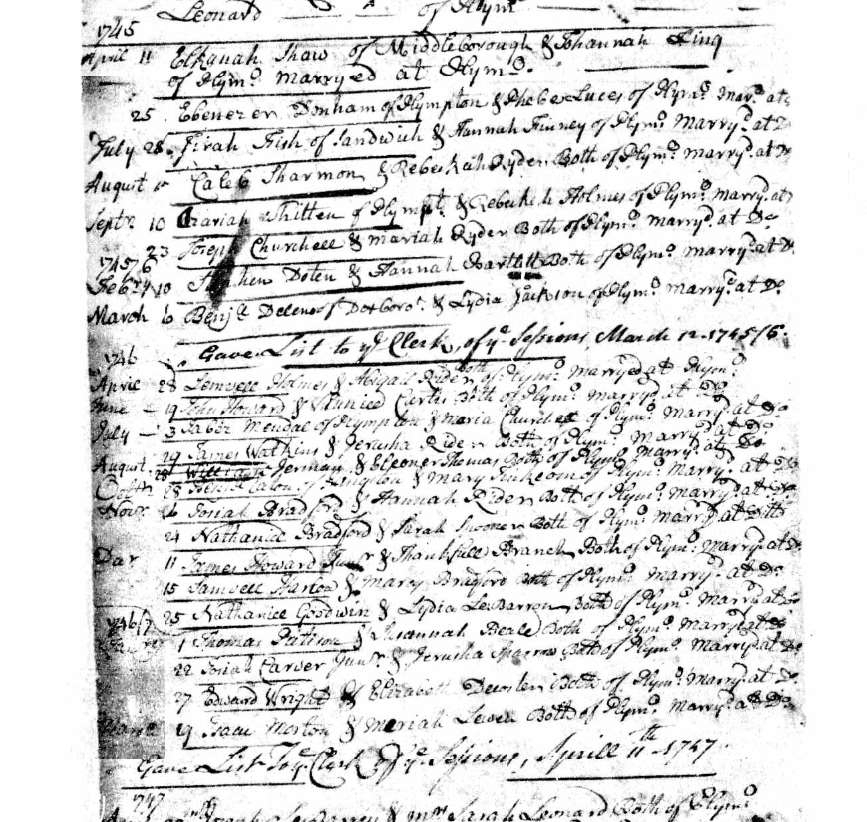 Leonard of Plymº
1745
April 11 Elkanah Shaw of Middleborough & Johannah King
of Plymº marryed at Plymº.
25 Ebenezer Donham of Plympton & Phebe Luces of Plymº Mar.d at
July 28. Jirah Fish of Sandwich & Hannah Finney of Plymº Marry.d at Dº
August Caleb Sharmon & Rebeckah Ryder Both of Plymº marry.d at Dº
Septr. 10 Zariah Whitten of Plympt. & Rebeckah Holmes of Plymº Marry.d at
23 Joseph Churchell & Mariah Ryder Both of Plymº marry.d at Dº
1745/6
Feb 10 Stephen Doten & Hannah Bartlett Both of Plymº marry.d at D.
March 6 Benj.a Deleno of Doxboro. & Lydia Jackson of Plymº marry.d at Dº
Gave List to yᵉ Clerk of yᵉ Sessions March 12. 1745/6.
1746
April 28 Lemuell Holmes & Abigail Rider both of Plymº Marryed at Plymº
June - 19 John Howard & Eunice Curtis Both of Plymº marry.d at Dº
July - 3 Jabez Mendal of Plympton & Maria Churchell of Plymº Marry.d at Dº
29 James Watkins & Jerusha Rider Both of Plymº Marry.d at Dº
August Jerman & Eleoner Thomas Both of Plymº Marry.d at Dº
Octbr. 28 Eaton of Kingston & Mary of Plymº Marry.d at Dº
Novr. 6 Josiah Bradford & Hannah Rider Both of Plymº Marry.d at Ditto
24 Nathaniel Bradford & Sarah Spooner Both of Plymº Marry.d at Ditto
Der 11 James Howard Junr & Thankfull Branch Both of Plymº: Marry.d at Dº
15 Samuell Harlow & Marcy Bradford Both of Plymº Marry.d at Dº
25 Nathaniel Goodwin & Lydia LeBarron Both of Plymº Marry.d at Dº
1746/7
1 Thomas Patison & Susannah Beale Both of Plymº Marry.d at Dº
22 Josiah Carver Junr. & Jerusha Sparrow Both of Plymº Marry.d at Dº
27 Edward Wright & Elizabeth Decoster Both of Plymº Marry.d at Dº
March 19 Isaac Morton & Meriah Lewen Both of Plymº Marry.d at Dº
Gave List To yᵉ Clerk of yᵉ Sessions, Aprill 11th 1747.
1747
& Mrs Sarah Leonard Both of Plymº